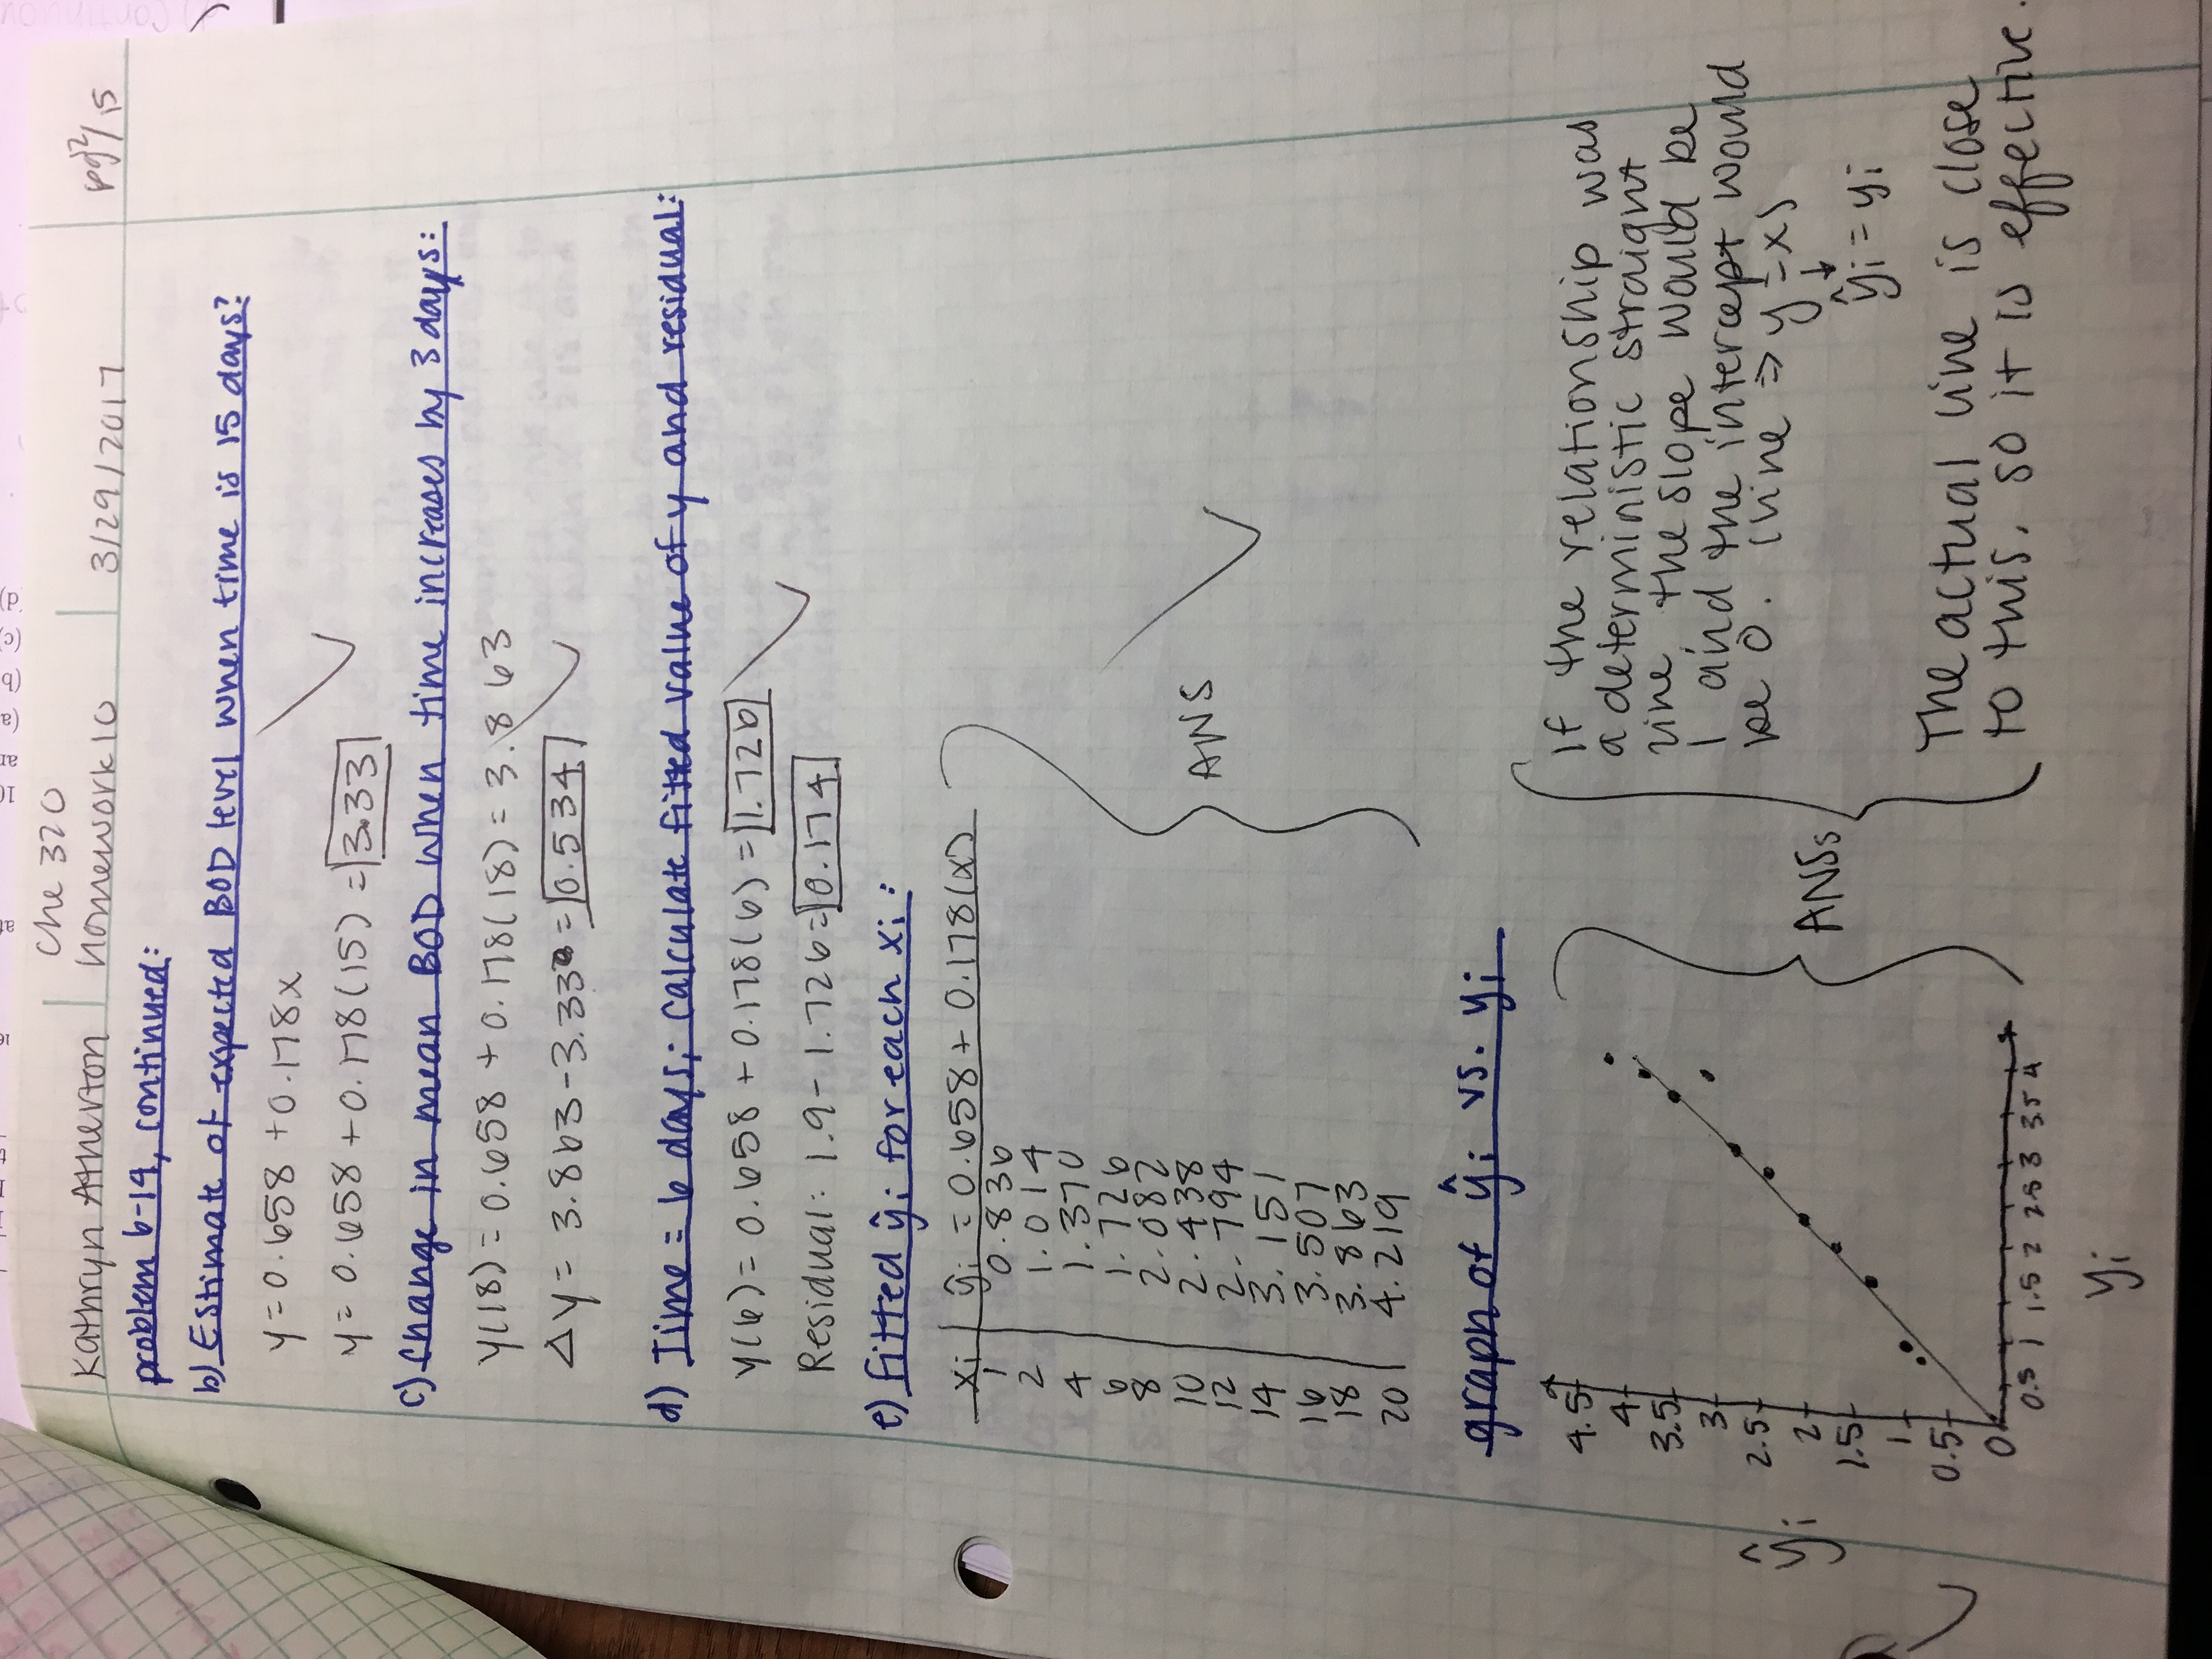 Che 320
Kathryn Atherton
Homework 10
3/29/2017
pg 2/15
problem 6-14, continued:
b) Estimate of expected BOD level when time is 15 days?
y = 0.658 + 0.178x
y = 0.658 + 0.178(15) = 3.33
c) Change in mean BOD when time increases by 3 days:
y(18) = 0.658 + 0.178(18) = 3.863
Δy = 3.863 - 3.33 = 0.534
d) Time = 6 days; calculate fitted value of y and residual:
y(6) = 0.658 + 0.178(6) = 1.726
Residual: 1.9 - 1.726 = 0.174
e) fitted ŷi for each xi:
xi | ŷi = 0.658 + 0.178(x)
1 0.836
2 1.014
4 1.370
6 1.726
8 2.082
10 2.438
12 2.794
14 3.151
16 3.507
18 3.863
20 4.219
ANS
graph of ŷi vs. yi
4.5
4
3.5
3
2.5
2
1.5
1
0.5
0
ŷi
0.5 1 1.5 2 2.5 3 3.5 4
yi
ANSs
If the relationship was
a deterministic straight
line, the slope would be
1 and the intercept would
be 0. (line ⇒ y = x)
↓
ŷi = yi
The actual line is close
to this, so it is effective.